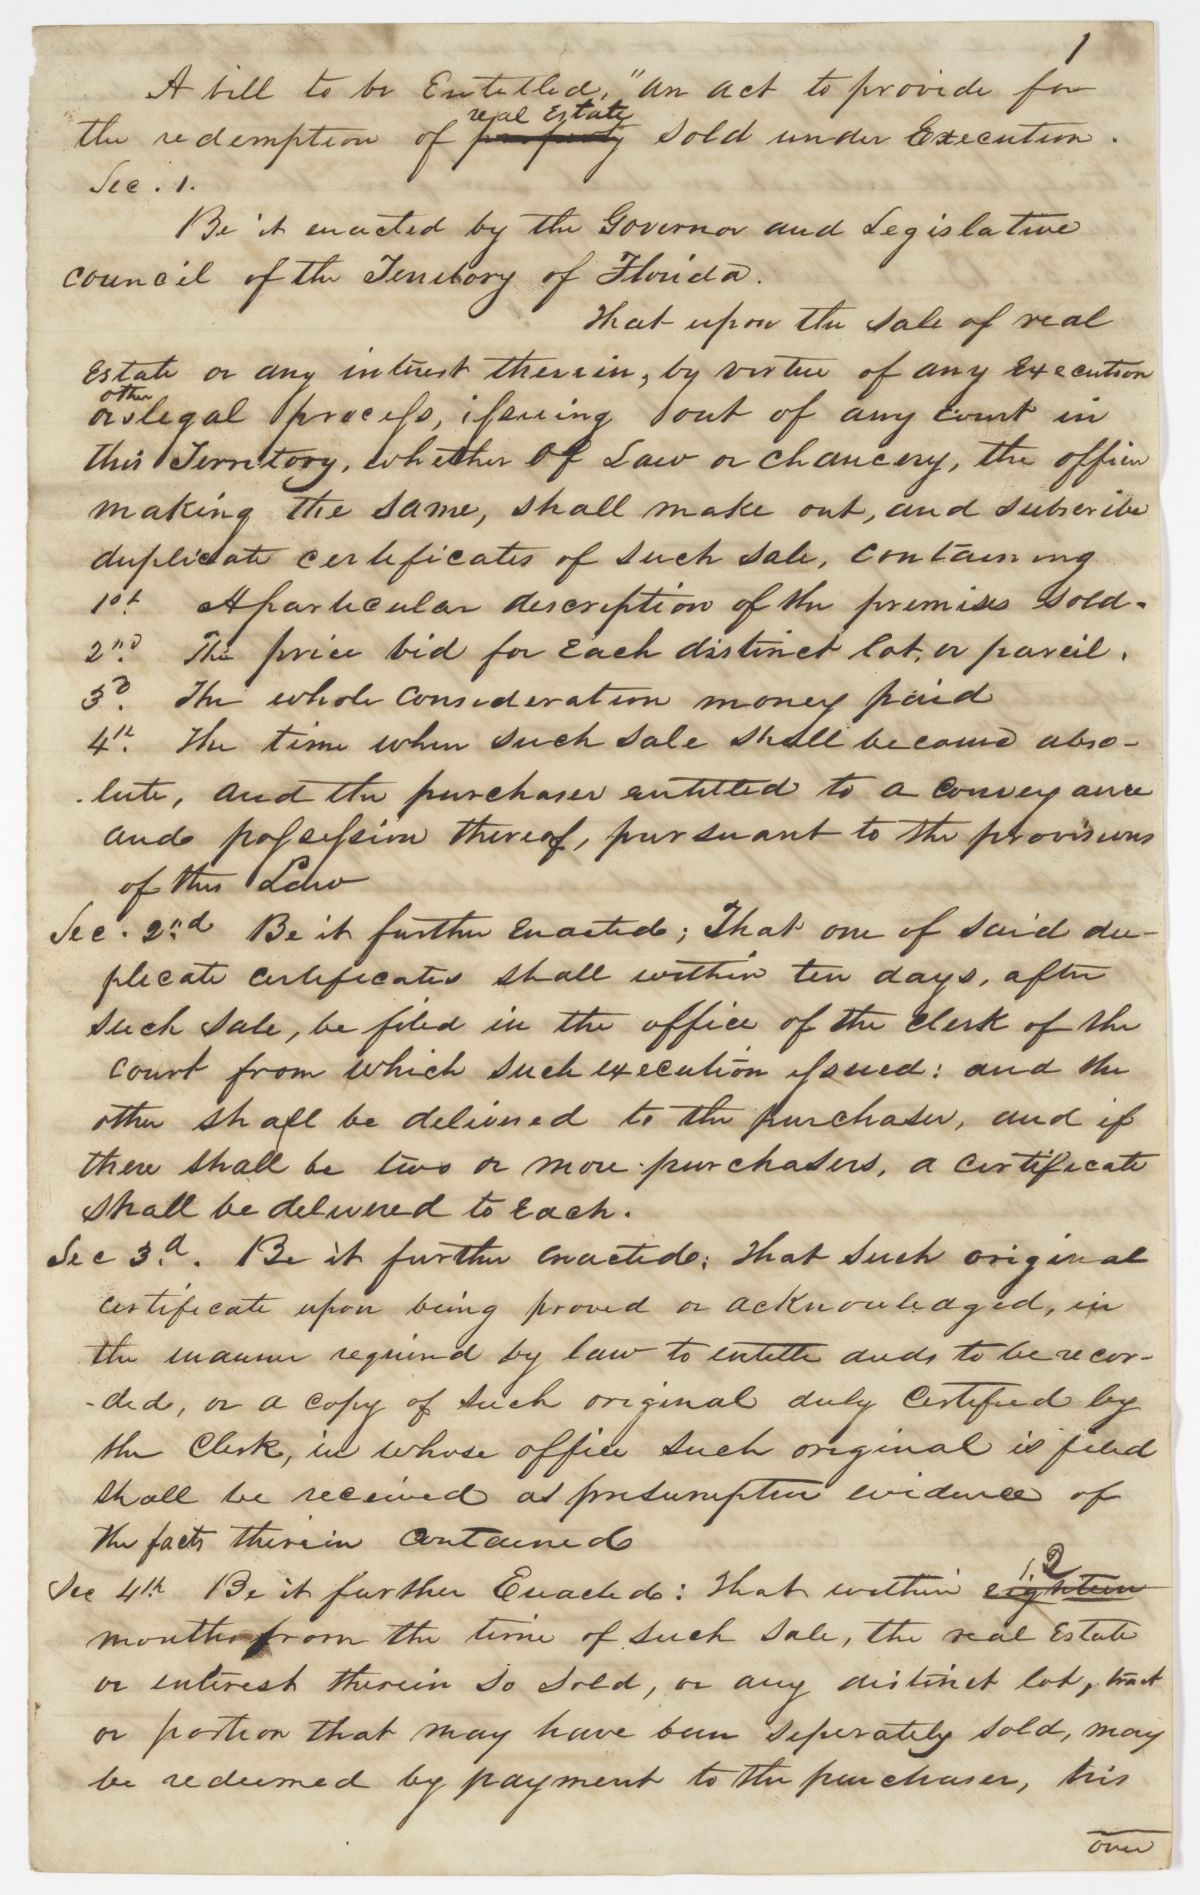 1
A bill to be Entitled, "an act to provide for
real Estate
the redemption of property sold under Execution.
Sec. 1.
Be it enacted by the Governor and Legislative
council of the Territory of Florida.
That upon the sale of real
Estate or any interest therein, by virtue of any Execution
other
or legal process, issuing out of any court in
this Territory, whether of Law or chancery, the officer
making the same, shall make out, and subscribe
duplicate certificates of such sale, containing
1st. A particular description of the premises sold.
2nd. The price bid for Each distinct lot, or parcel.
3d. The whole consideration money paid
4th. The time when such sale shall become abso-
lute, and the purchaser entitled to a conveyance
and possession thereof, pursuant to the provisions
of this Law
Sec. 2nd Be it further Enacted; That one of said du-
plicate certificates shall within ten days, after
such sale, be filed in the office of the clerk of the
court from which such execution issued: and the
other shall be delivered to the purchaser, and if
there shall be two or more purchasers, a certificate
shall be delivered to Each.
Sec 3d. Be it further enacted: that such original
certificate upon being proved or acknowledged, in
the manner required by law to entitle deeds to be recor-
-ded, or a copy of such original duly certified by
the Clerk, in whose office such original is filed
shall be received as presumptive evidence of
the facts therein contained
12
Sec 4th Be it further Enacted: that within eighteen
months from the time of such sale, the real Estate
or interest therein so sold, or any distinct lot, tract
or portion that may have been seperately sold, may
be redeemed by payment to the purchaser, his
over